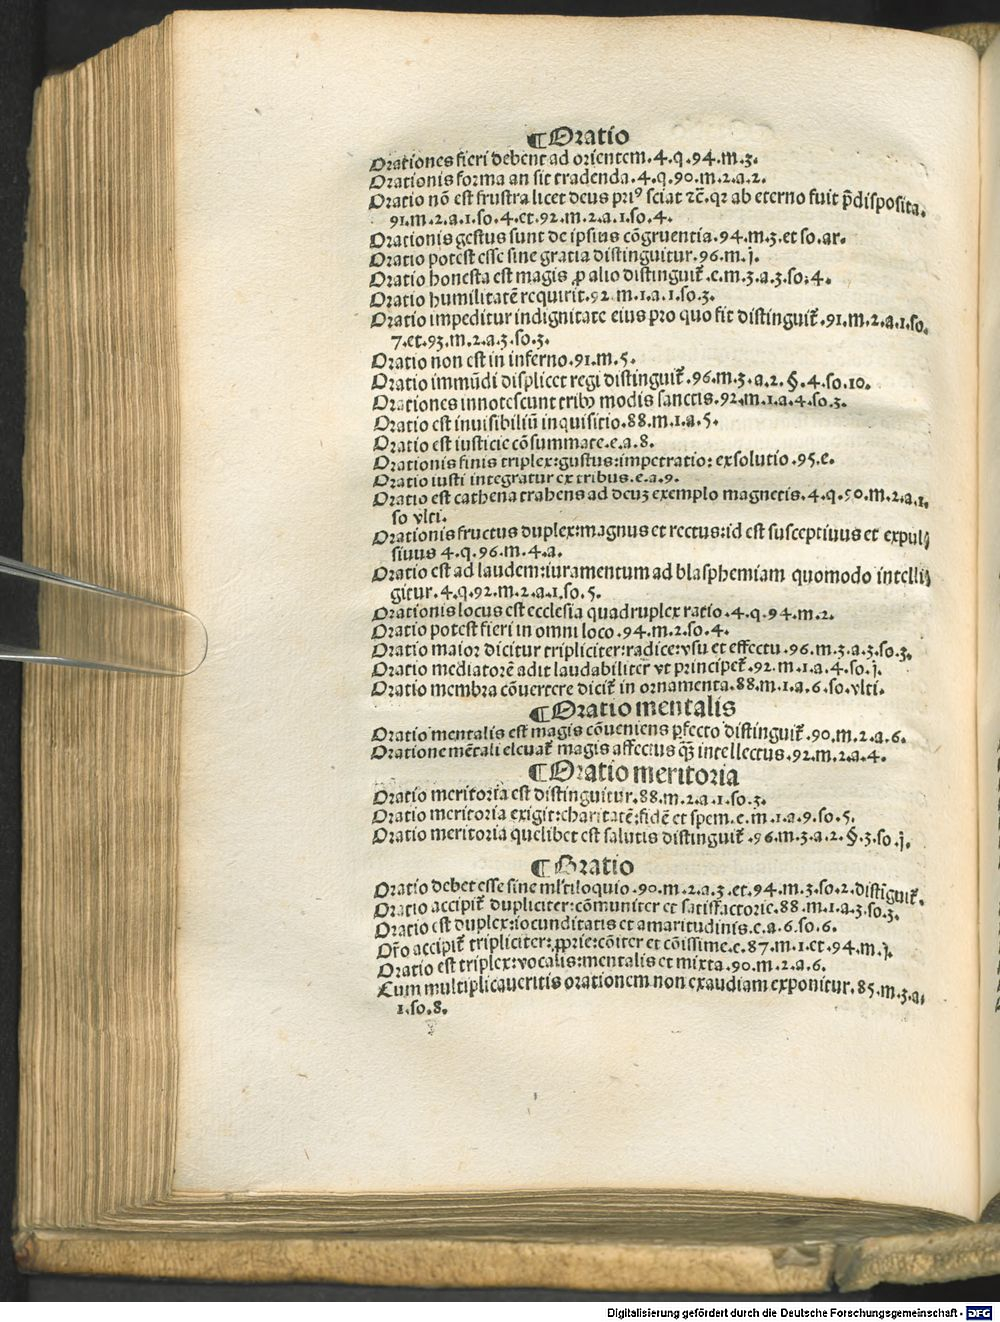 ¶Oratio
Orationes fieri debent ad orientem.4.q.94.m.3.
Orationis forma an sit tradenda.4.q.90.m.2.a.2.
Oratio nō est frustra licet deus priꝰ sciat ⁊c̄.qꝛ ab eterno fuit p̄disposita.
91.m.2.a.1.so.4.et.92.m.2.a.1.so.4.
Orationis gestus sunt de ipsius cōgruentia.94.m.3.et so.ar.
Oratio potest esse sine gratia distinguitur.96.m.j.
Oratio honesta est magis ꝓ alio distinguit᷑.e.m.3.a.3.so.4.
Oratio humilitatē requirit.92.m.1.a.1.so.3.
Oratio impeditur indignitate eius pro quo fit distinguit᷑.91.m.2.a.1.so.
7.et.93.m.2.a.3.so.3.
Oratio non est in inferno.91.m.5.
Oratio immūdi displicet regi distinguit᷑.96.m.3.a.2.§.4.so.10.
Orationes innotescunt tribꝰ modis sanctis.92.m.1.a.4.so.3.
Oratio est inuisibiliū inquisitio.88.m.1.a.5.
Oratio est iusticie cōsummate.e.a.8.
Orationis finis triplex:gustus:impetratio:exsolutio.95.e.
Oratio iusti integratur ex tribus.e.a.9.
Oratio est cathena trahens ad deuꝫ exemplo magnetis.4.q.90.m.2.a.1.
so vlti.
Orationis fructus duplex:magnus et rectus:id est susceptiuus et expul⸗
siuus 4.q.96.m.4.a.
Oratio est ad laudem:iuramentum ad blasphemiam quomodo intelli⸗
gitur.4.q.92.m.2.a.1.so.5.
Orationis locus est ecclesia quadruplex ratio.4.q.94.m.2.
Oratio potest fieri in omni loco.94.m.2.so.4.
Oratio maior dicitur tripliciter:radice:vsu et effectu.96.m.3.a.3.so.3.
Oratio mediatorē adit laudabiliter vt principet᷑.92.m.1.a.4.so.j.
Oratio membra cōuertere dicit᷑ in ornamenta.88.m.1.a.6.so.vlti.
¶Oratio mentalis
Oratio mentalis est magis cōueniens ꝑfecto distinguit᷑.90.m.2.a.6.
Oratione mētali eleuat᷑ magis affectus qꝫ intellectus.92.m.2.a.4.
¶Oratio meritoria
Oratio meritoria est distinguitur.88.m.2.a.1.so.3.
Oratio meritoria exigit:charitatē:fidē et spem.e.m.1.a.9.so.5.
Oratio meritoria quelibet est salutis distinguit᷑.96.m.3.a.2.§.3.so.j.
¶Oratio
Oratio debet esse sine ml̄tiloquio.90.m.2.a.3.et.94.m.3.so.2.distiguit᷑.
Oratio accipit᷑ dupliciter:cōmuniter et satisfactorie.88.m.1.a.3.so.3.
Oratio est duplex:iocunditatis et amaritudinis.e.a.6.so.6.
Or̄o accipit᷑ tripliciter:ꝓprie:cōiter et cōissime.e.87.m.1.et.94.m.j.
Oratio est triplex:vocalis:mentalis et mixta.90.m.2.a.6.
Cum multiplicaueritis orationem non exaudiam exponitur.85.m.3.a.
1.so.8.
Digitalisierung gefördert durch die Deutsche Forschungsgemeinschaft - DFG